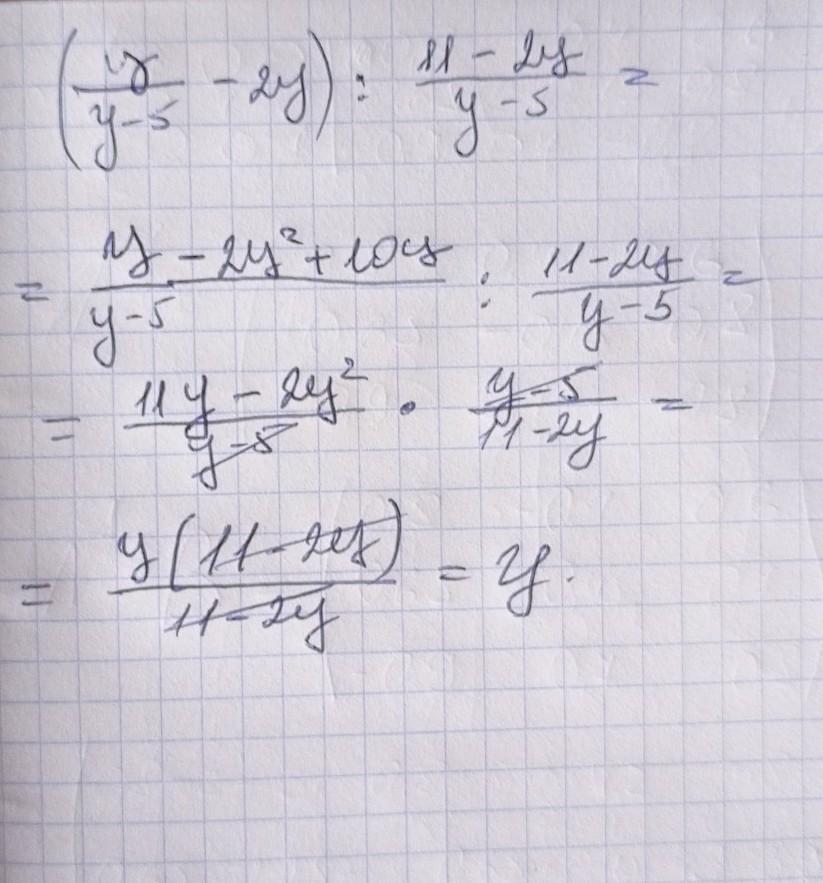 (y/(y-5) - 2y) : (11 - 2y)/(y - 5) =
= (y - 2y² + 10y)/(y-5) : (11-2y)/(y-5) =
= (11y - 2y²)/(y-5) · (y-5)/(11-2y) =
= y(11-2y)/(11-2y) = y.